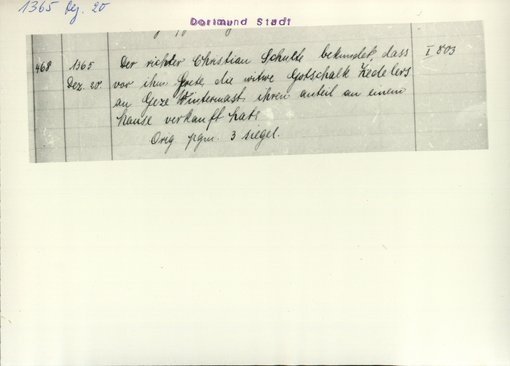 1365 Dez. 20
Dortmund Stadt
468 1365 Der richter Christian Schulte bekundet, dass I 803
Dez. 20. vor ihm Grete die witwe Gotschalk Kedelers
an Geze Wintermast ihren anteil an einem
hause verkauft hat.
Orig. pgm. 3 siegel.